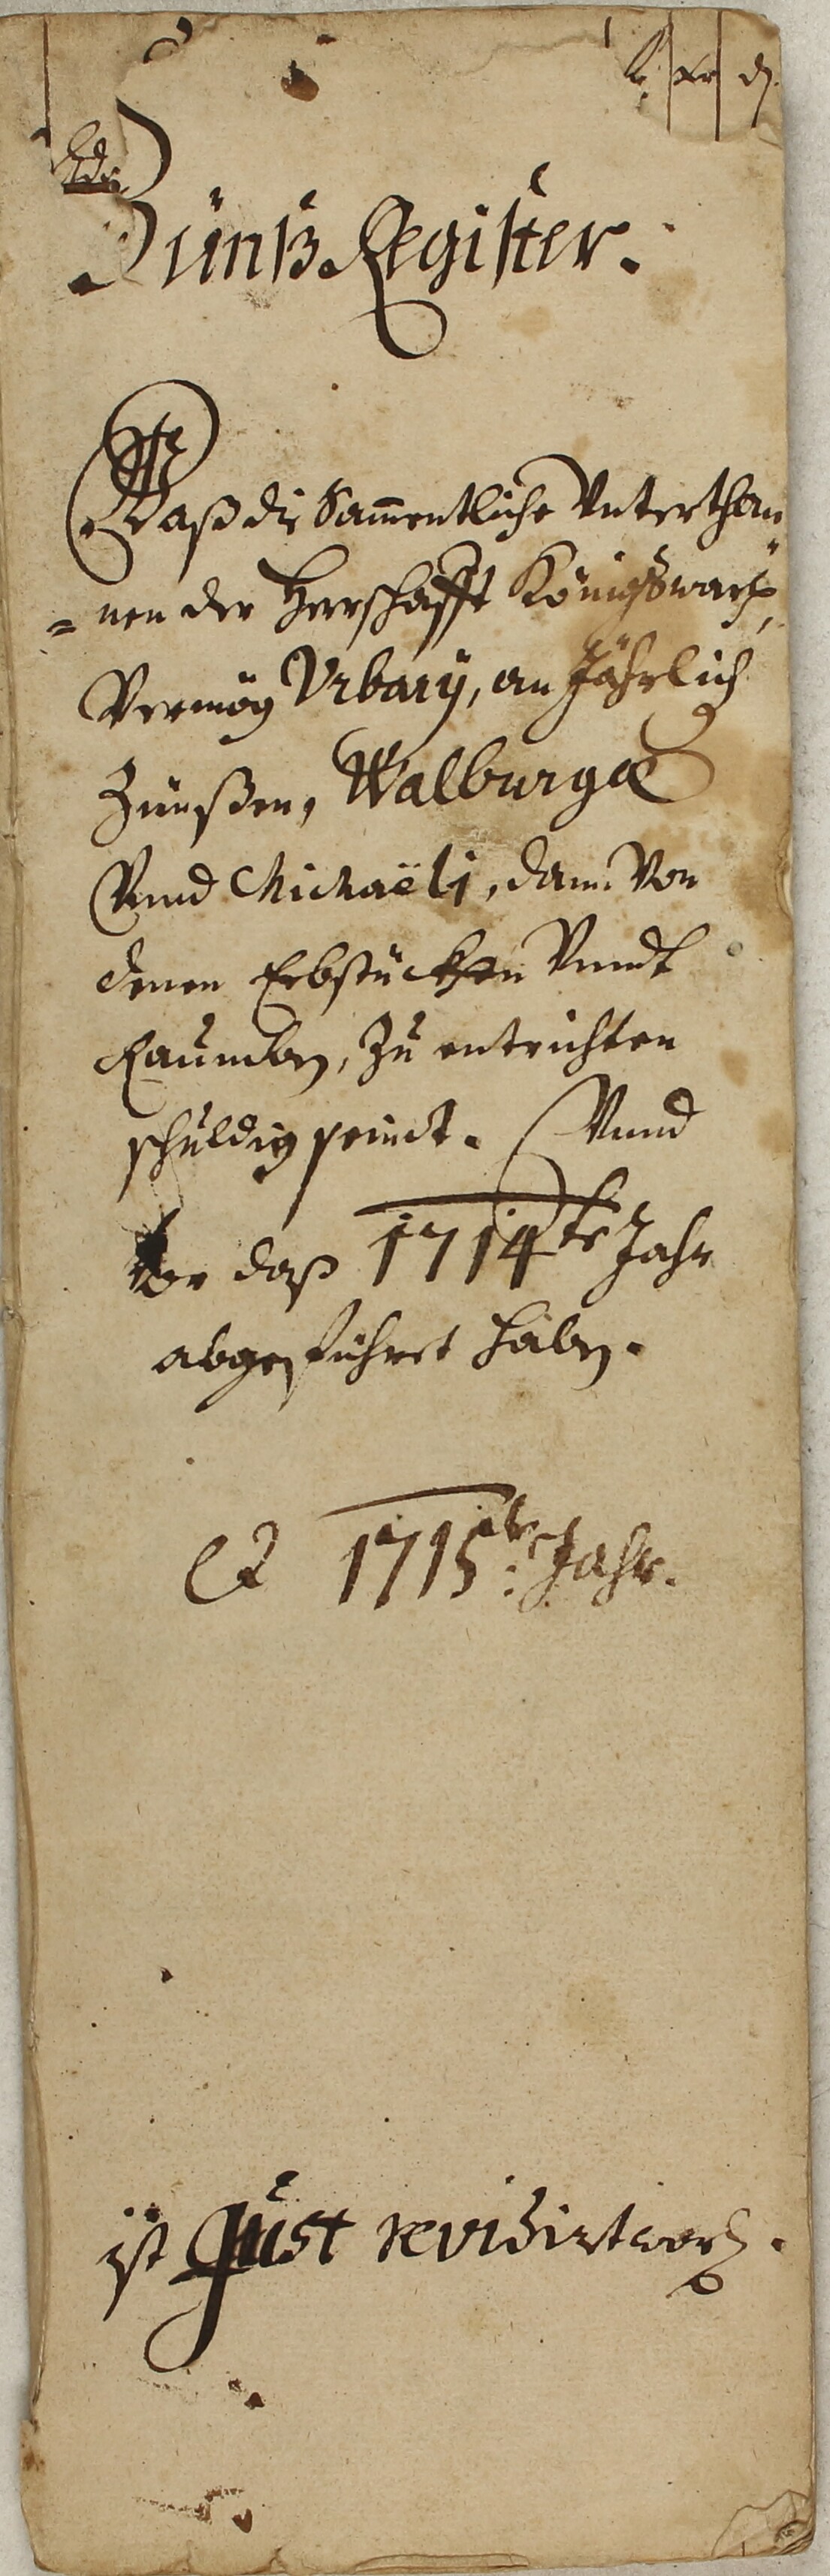 fl. xr d.
Zünß Register.
Waß die Sammentliche Vnterthan
nen der Herrschafft Königßwarth,
Vermög Vrbarÿ, an Jährlich
Zünßen, Walburgæ
Vnnd Michaëli, dann Von
denen Erbstücken Vnndt
Raumben, Zu entrichten
schuldig seindt. Vnnd
vor daß 1714te Jahr
abgeführet haben.
Et 1715te: Jahr.
ist Just revidirt word.